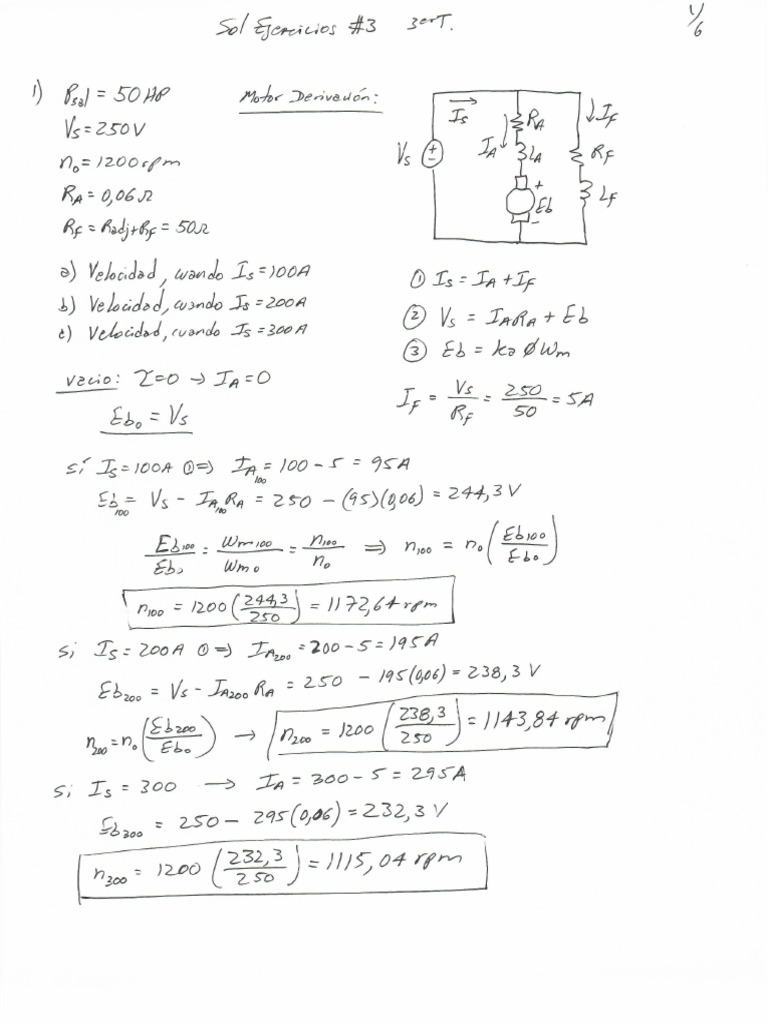 Sol Ejercicios #3 3erT. 1/6
1) Psal = 50 HP Motor Derivación:
Vs = 250V
n0 = 1200 rpm
RA = 0,06 Ω
RF = Radj + RF = 50Ω
Is
IA
RA
LA
Vs
+
-
+
Eb
-
IF
RF
LF
a) Velocidad, cuando Is = 100A
b) Velocidad, cuando Is = 200A
c) Velocidad, cuando Is = 300A
① Is = IA + IF
② Vs = IARA + Eb
③ Eb = ka Ø Wm
vacio: τ = 0 → IA = 0
Eb0 = Vs
IF = Vs/RF = 250/50 = 5A
sí Is = 100A ① ⇒ IA100 = 100 - 5 = 95A
Eb100 = Vs - IA100 RA = 250 - (95)(0,06) = 244,3 V
Eb100/Eb0 = Wm100/Wm0 = n100/n0 ⇒ n100 = n0 (Eb100/Eb0)
n100 = 1200 (244,3/250) = 1172,64 rpm
si Is = 200A ① ⇒ IA200 = 200 - 5 = 195A
Eb200 = Vs - IA200 RA = 250 - 195(0,06) = 238,3 V
n200 = n0 (Eb200/Eb0) → n200 = 1200 (238,3/250) = 1143,84 rpm
si Is = 300 → IA = 300 - 5 = 295A
Eb300 = 250 - 295(0,06) = 232,3 V
n300 = 1200 (232,3/250) = 1115,04 rpm